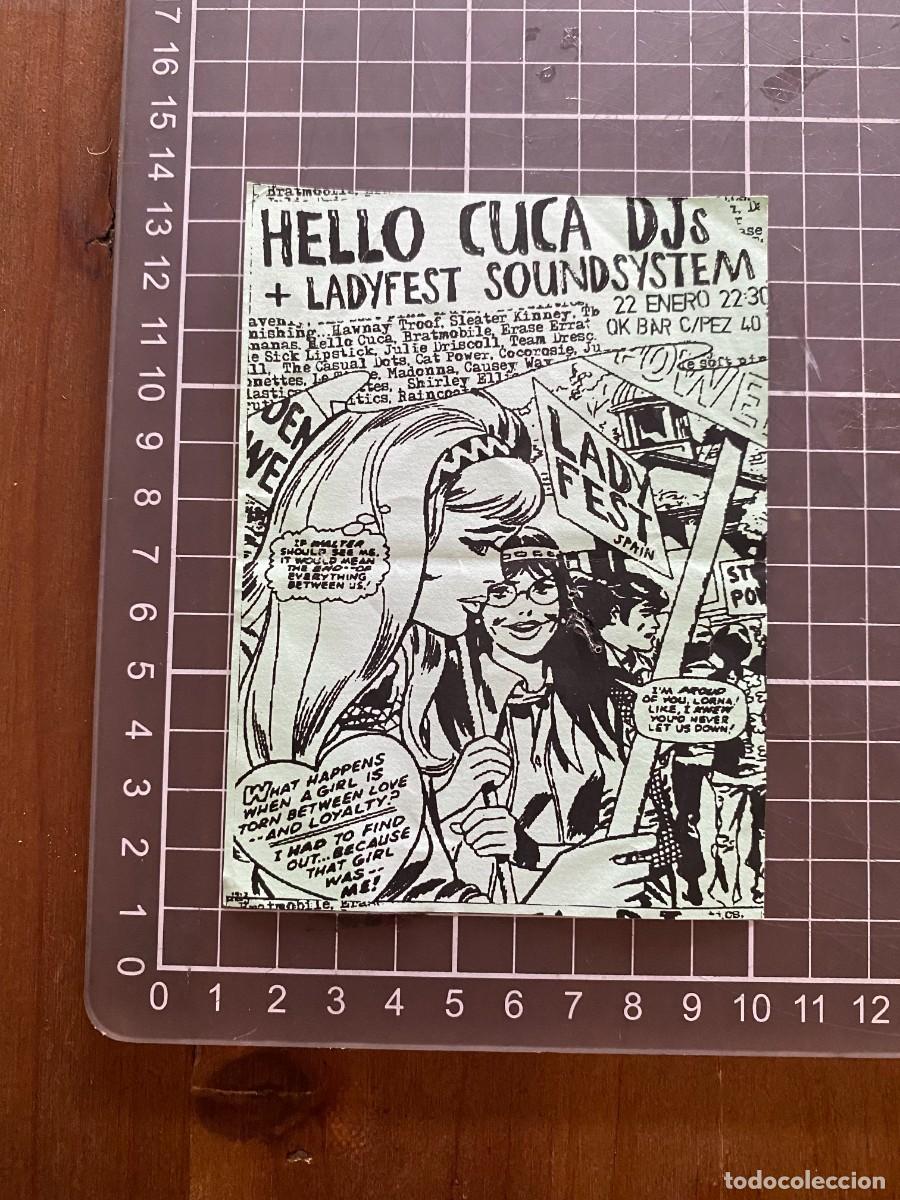 Bratmobile,
HELLO CUCA DJs
+ LADYFEST SOUNDSYSTEM
22 ENERO 22:30
OK BAR C/PEZ 40
avenly,
nishing...Hawnay Troof, Sleater Kinney, Tb
nanas, Hello Cuca, Bratmobile, Erase Errat
e Sick Lipstick, Julie Driscoll, Team Dresc
ll, The Casual Dots, Cat Power, Cocorosie, Ju
onettes, Le Madonna, Causey Way
lastic tes, Shirley Elli
itics, Raincoa
e soft pin
DEN
WE
OWE
LADY
FEST
SPAIN
ST
PO
IF WALTER
SHOULD SEE ME,
IT WOULD MEAN
THE END--OF
EVERYTHING
BETWEEN US!
I'M PROUD
OF YOU, LORNA!
LIKE, I KNEW
YOU'D NEVER
LET US DOWN!
WHAT HAPPENS
WHEN A GIRL IS
TORN BETWEEN LOVE
--AND LOYALTY?
I HAD TO FIND
OUT...BECAUSE
THAT GIRL
WAS--
ME!
Bratmobile, Eras
17
16
15
14
13
12
11
10
9
8
7
6
5
4
3
2
1
0
0 1 2 3 4 5 6 7 8 9 10 11 12
todocoleccion